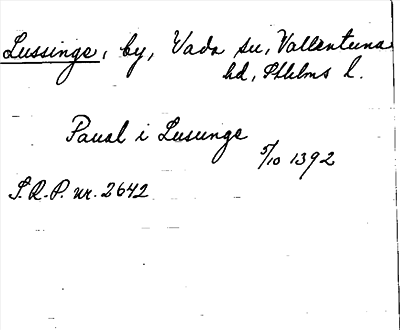 Lussinge, by, Vada sn, Vallentuna
hd, Sthlms l.
Paual i Lusunge
5/10 1392
S.R.P. nr. 2642